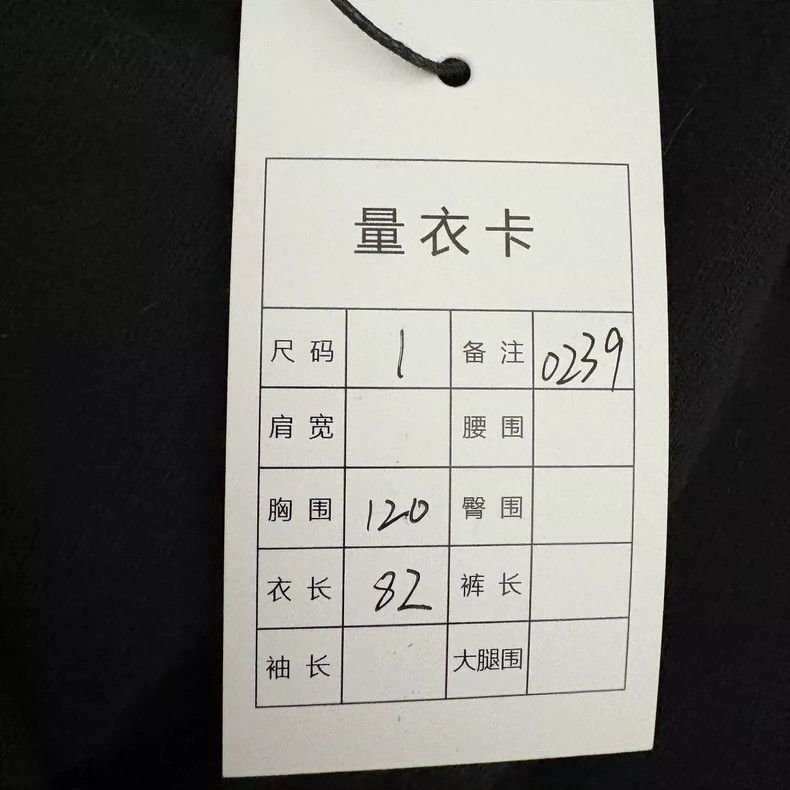 量衣卡
尺码 1 备注 0239
肩宽 腰围
胸围 120 臀围
衣长 82 裤长
袖长 大腿围